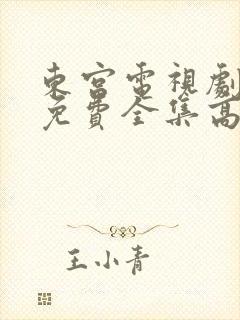 東宮電視劇
免費全集高
王小青